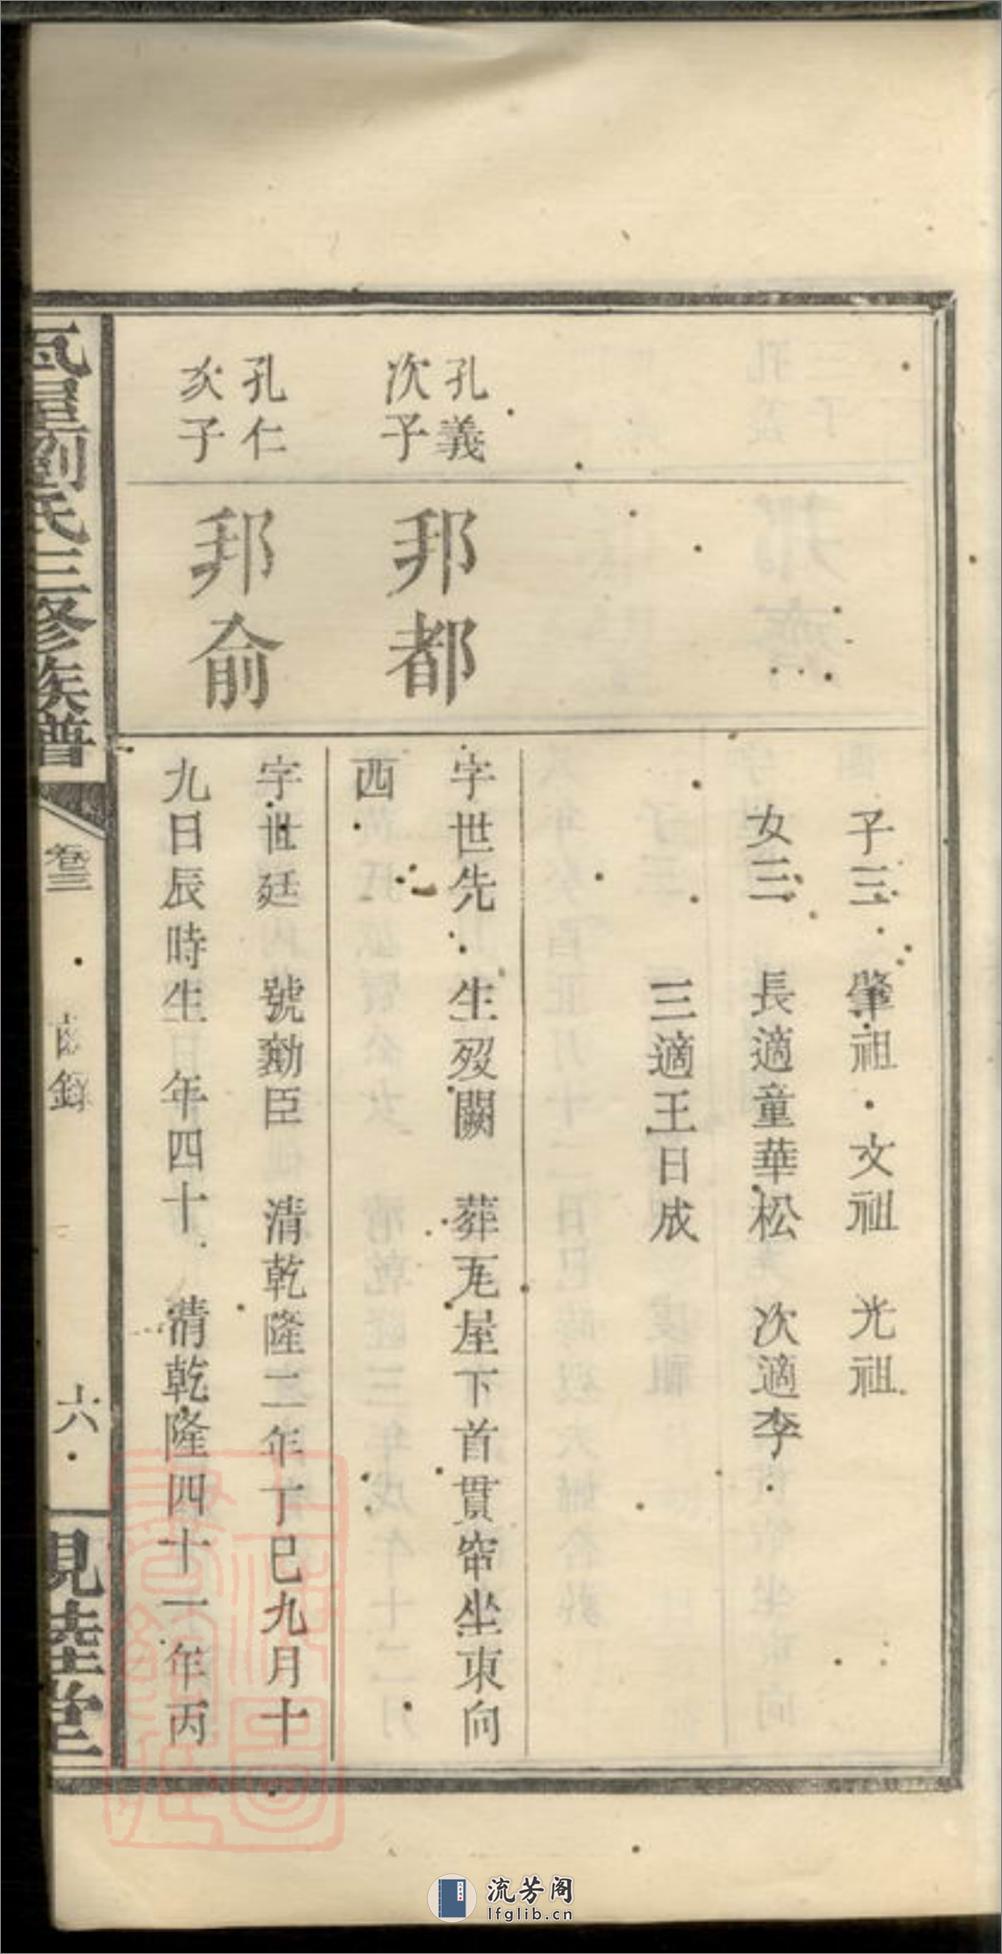 子三　肇祖　文祖　光祖
女三　長適童華松　次適李
三適王日成
孔義
次子
邦都
字世先　生歿闕　葬瓦屋下首貫窂坐東向
西
孔仁
次子
邦俞
字世廷　號勷臣　清乾隆二年丁巳九月十
九日辰時生　年四十　清乾隆四十一年丙
瓦屋劉氏三修族譜
卷三
齒錄
六
見陸堂
流芳阁
lfglib.cn